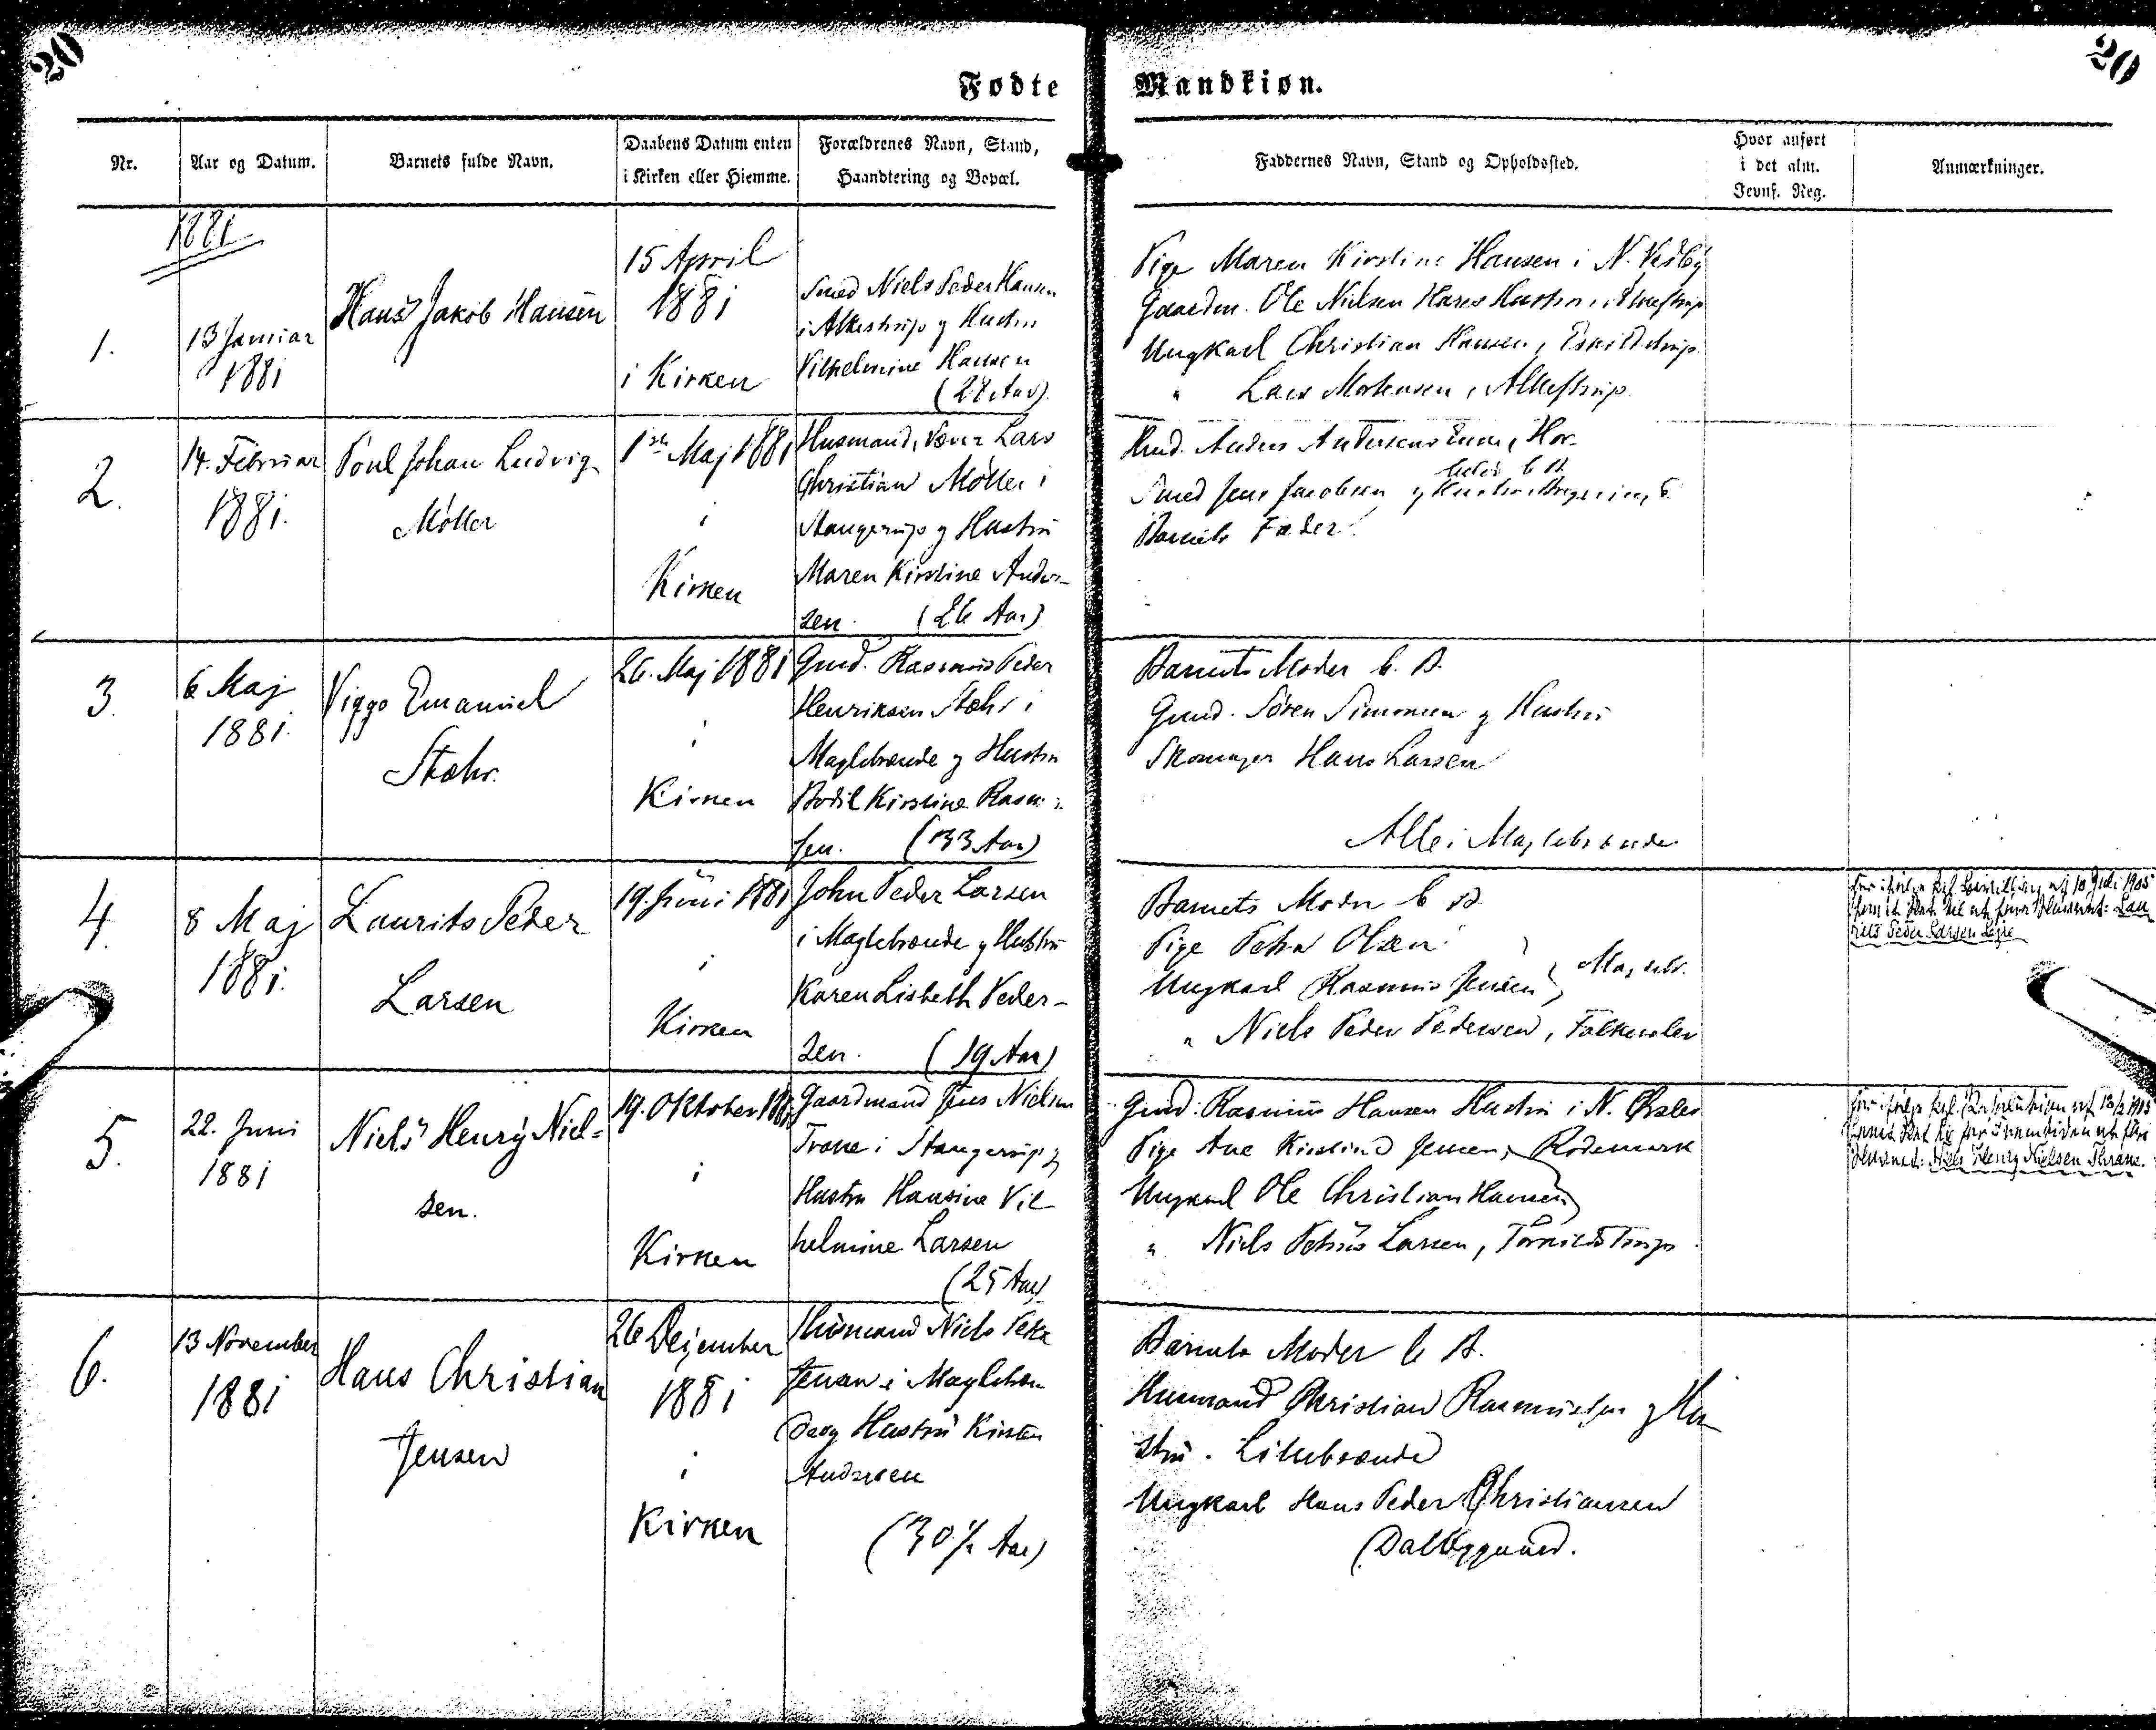 20
20
Fødte Mandkiøn.
Nr.
Aar og Datum.
Barnets fulde Navn.
Daabens Datum enten
i Kirken eller Hiemme.
Forældrenes Navn, Stand,
Haandtering og Bopæl.
Faddernes Navn, Stand og Opholdssted.
Hvor anført
i det alm.
Jevnf. Reg.
Anmærkninger.
1881
1.
13 Januar
1881
Hans Jakob Hansen
15 April
1881
i Kirken
Smed Niels Peder Hansen
i Alkestrup og Hustru
Vilhelmine Hansen
Pige Maren Kirstine Hansen i N. Vedby
Gaardm. Ole Nielsen Hares Hustru i
Ungkarl Christian Hansen, Eskildstrup
" Lars Mortensen, Alkestrup
2.
14. Februar
1881.
Poul Johan Ludvig
Møller
1ste Maj 1881
i
Kirken
Husmand, Væver Lars
Christian Møller i
Stangerup og Hustru
Maren Kirstine Ander-
sen. (26 Aar)
Hmd. Anders Andersens Hor-
b. B.
Smed Jens Jacobsen og Hustru
Barnets Fader.
3.
6 Maj
1881.
Viggo Emanuel
Stæhr.
26. Maj 1881
i
Kirken
Gmd. Rasmus Peder
Henriksen Stæhr i
Maglebrænde og Hustru
Bodil Kirstine Rasmus-
sen. (33 Aar)
Barnets Moder b. B.
Gmd. Søren Simonsen og Hustru
Skomager Hans Larsen
Alle i Maglebrænde.
4.
8 Maj
1881.
Laurits Peder
Larsen
19. Juni 1881
i
Kirken
John Peder Larsen
i Maglebrænde og Hustru
Karen Lisbeth Peder-
sen. (19 Aar)
Barnets Moder b B.
Pige Petra Olsen
Ungkarl Rasmus Jensen } Maglebr.
" Niels Peder Pedersen, Falkerslev
Har ifølge kgl. Bevilling af 10 Juli 1905
Ret til at føre Navnet: Lau-
rits Peder Larsen
5.
22. Juni
1881
Niels Henry Niel-
sen.
19. Oktober 1881
i
Kirken
Gaardmand Jens Nielsen
Trane i Stangerup og
Hustru Hansine Vil-
helmine Larsen
(25 Aar)
Gmd. Rasmus Hansen Hustru i N. Ørslev
Pige Ane Kirstine Jensen, Rodemark
Ungkarl Ole Christian Hansen
" Niels Petrus Larsen, Torkildstrup.
Har ifølge kgl. Resolution af 13/2 1905
Ret til for Fremtiden at føre
Navnet: Niels Henry Nielsen Thrane.
6.
13 November
1881
Hans Christian
Jensen
26 Dezember
1881
i
Kirken
Husmand Niels Peter
Jensen i Maglebræn-
de og Hustru Kirsten
Andersen
(30½ Aar)
Barnets Moder b B.
Husmand Christian Rasmussen og Hu-
stru. Lillebrænde
Ungkarl Hans Peder Christiansen